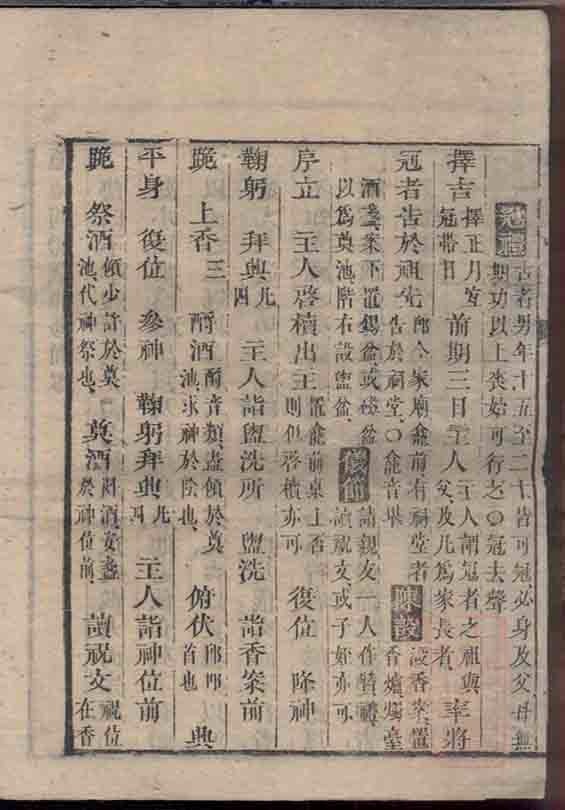 冠禮 古者男年十五至二十皆可冠必身及父母無
期功以上喪始可行之〇冠去聲
擇吉 擇正月內冠帶日 前期三日主人 主人謂冠者之祖與父、及凡爲家長者 率將
冠者告於祖先 即今家廟龕前有祠堂者告於祠堂、〇龕音堪 陳設 設香案、置香爐燭臺
酒盞案下置錫盆或磁盆
以爲奠池階右設盥盆、 儀節 請親友一人作贊禮、讀祝文或子姪亦可
序立 主人啓櫝出主 置龕前桌上否則但啓櫝亦可 復位 降神
鞠躬 拜興 凡四 主人詣盥洗所 盥洗 詣香案前
跪 上香 三 酹酒 酹音類盡傾於奠池、求神於陰也、 俯伏 即叩首也 興
平身 復位 參神 鞠躬拜興 凡四 主人詣神位前
跪 祭酒 傾少許於奠池、代神祭也、 奠酒 斟酒、安盞於神位前、 讀祝文 祝位在香